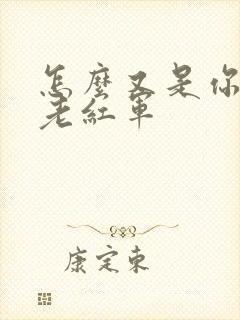 怎麼又是你
老紅軍
康定東